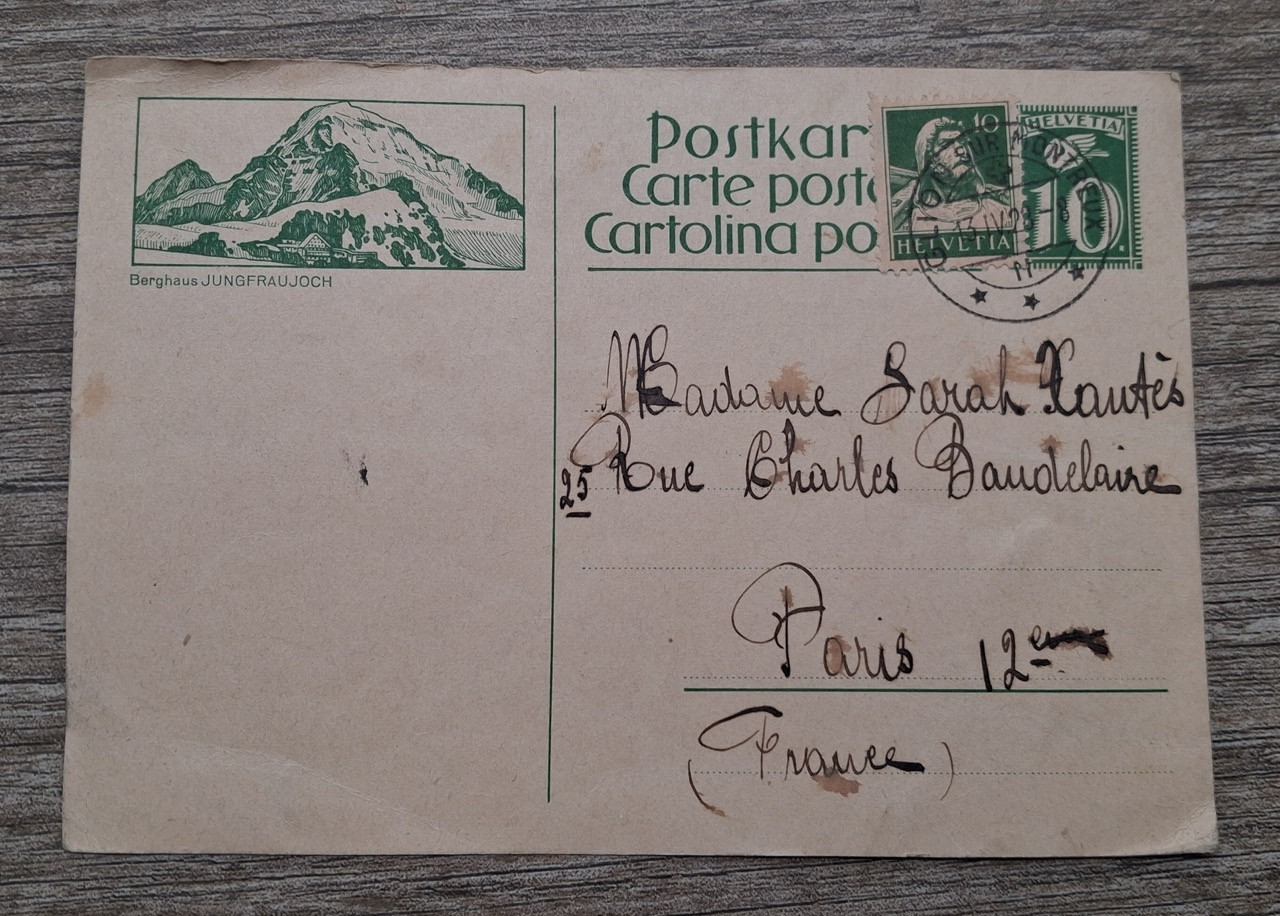 Berghaus JUNGFRAUJOCH
Postkar
Carte posta
Cartolina po
10
HELVETIA
HELVETIA
10
GLION SUR MONTREUX
13.IV.28-8
Madame Sarah Xantès
25 Rue Charles Baudelaire
Paris 12e
(France)